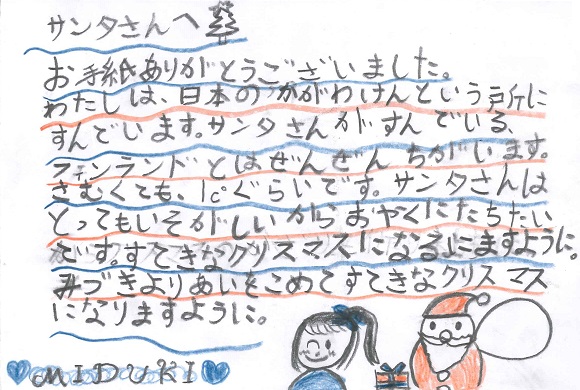 サンタさんへ
お手紙ありがとうございました。
わたしは、日本のかがわけんという所に
すんでいます。サンタさんがすんでいる、
フィンランドとはぜんぜんちがいます。
さむくても、1c°ぐらいです。サンタさんは
とってもいそがしいからおやくにたちたい
です。すてきなクリスマスになるよにますように。
みづきよりあいをこめてすてきなクリスマス
になりますように。
MIDUKI